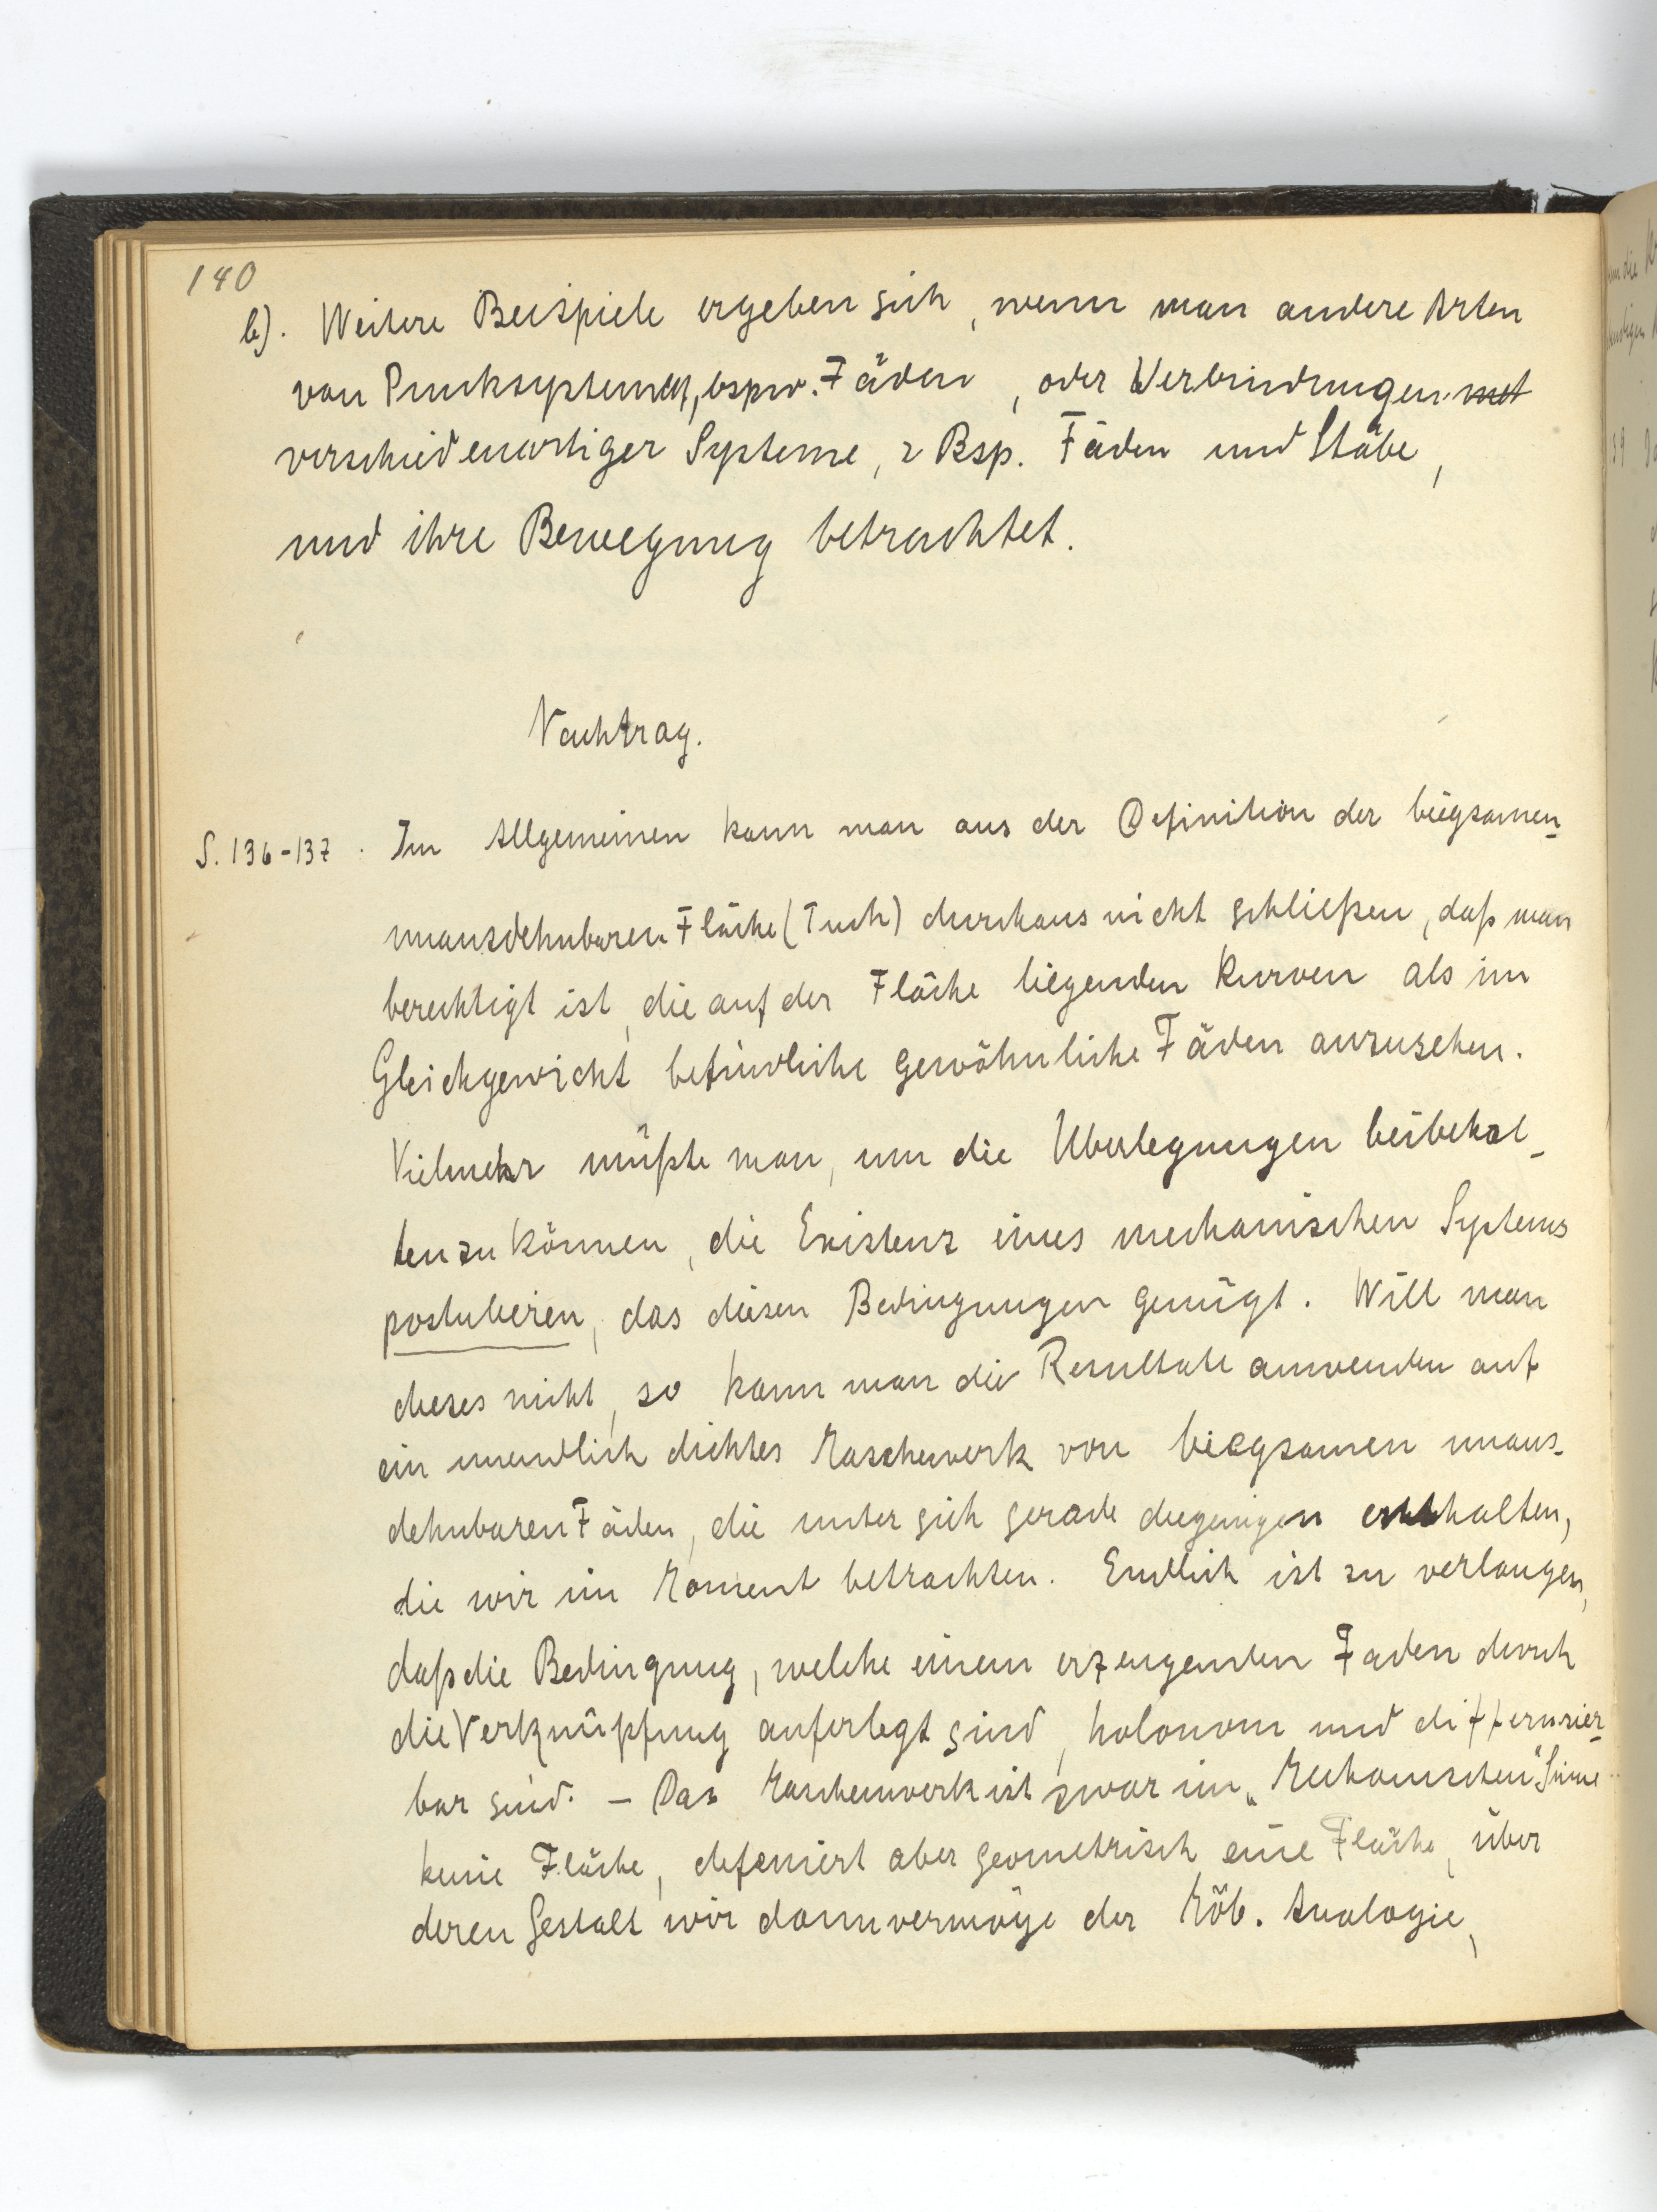 140
b). Weitere Beispiele ergeben sich, wenn man andere Arten
von Punktsystemen, bspw. Fäden, oder Verbindungen mit
verschiedenartiger Systeme, z Bsp. Fäden und Stäbe,
und ihre Bewegung betrachtet.
Nachtrag.
S. 136-137. Im Allgemeinen kann man aus der Definition der biegsamen
unausdehnbaren Fläche (Tuch) durchaus nicht schließen, daß man
berechtigt ist, die auf der Fläche liegenden Kurven als im
Gleichgewicht befindliche gewöhnliche Fäden anzusehen.
Vielmehr müßte man, um die Überlegungen beibehal-
ten zu können, die Existenz eines mechanischen Systems
postulieren, das diesen Bedingungen genügt. Will man
dieses nicht, so kann man die Resultate anwenden auf
ein unendlich dichtes Maschewerk von biegsamen unaus-
dehnbaren Fäden, die unter sich gerade diejenigen enthalten,
die wir im Moment betrachten. Endlich ist zu verlangen,
daß die Bedingung, welche einem erzeugenden Faden durch
die Verknüpfung auferlegt sind, holonom und differenzier-
bar sind. - Das Maschenwerk ist zwar im „Mechanischen“ Sinne
keine Fläche, definiert aber geometrisch eine Fläche, über
deren Gestalt wir dann vermöge der Möb. Analogie,